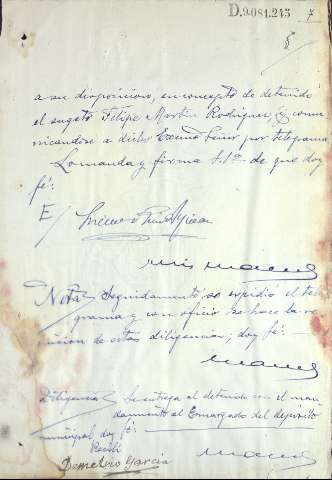 D.9.081.245 7
8
a su disposicion, en concepto de detenido
el sugeto Felipe Martin Rodriguez, y comu
nicandose a dicho Excmo Señor por telegrama
Lo manda y firma S.Sª. de que doy
fé:
E/
Luis
Nota/ Seguidamente se expidió el tele
grama y con oficio se hace la re
mision de estas diligencias; doy fé:
Diligencia/ Se entrega al detenido con el man
damiento al Encargado del deposito
municipal doy fé:
Recibí
Demetrio Garcia